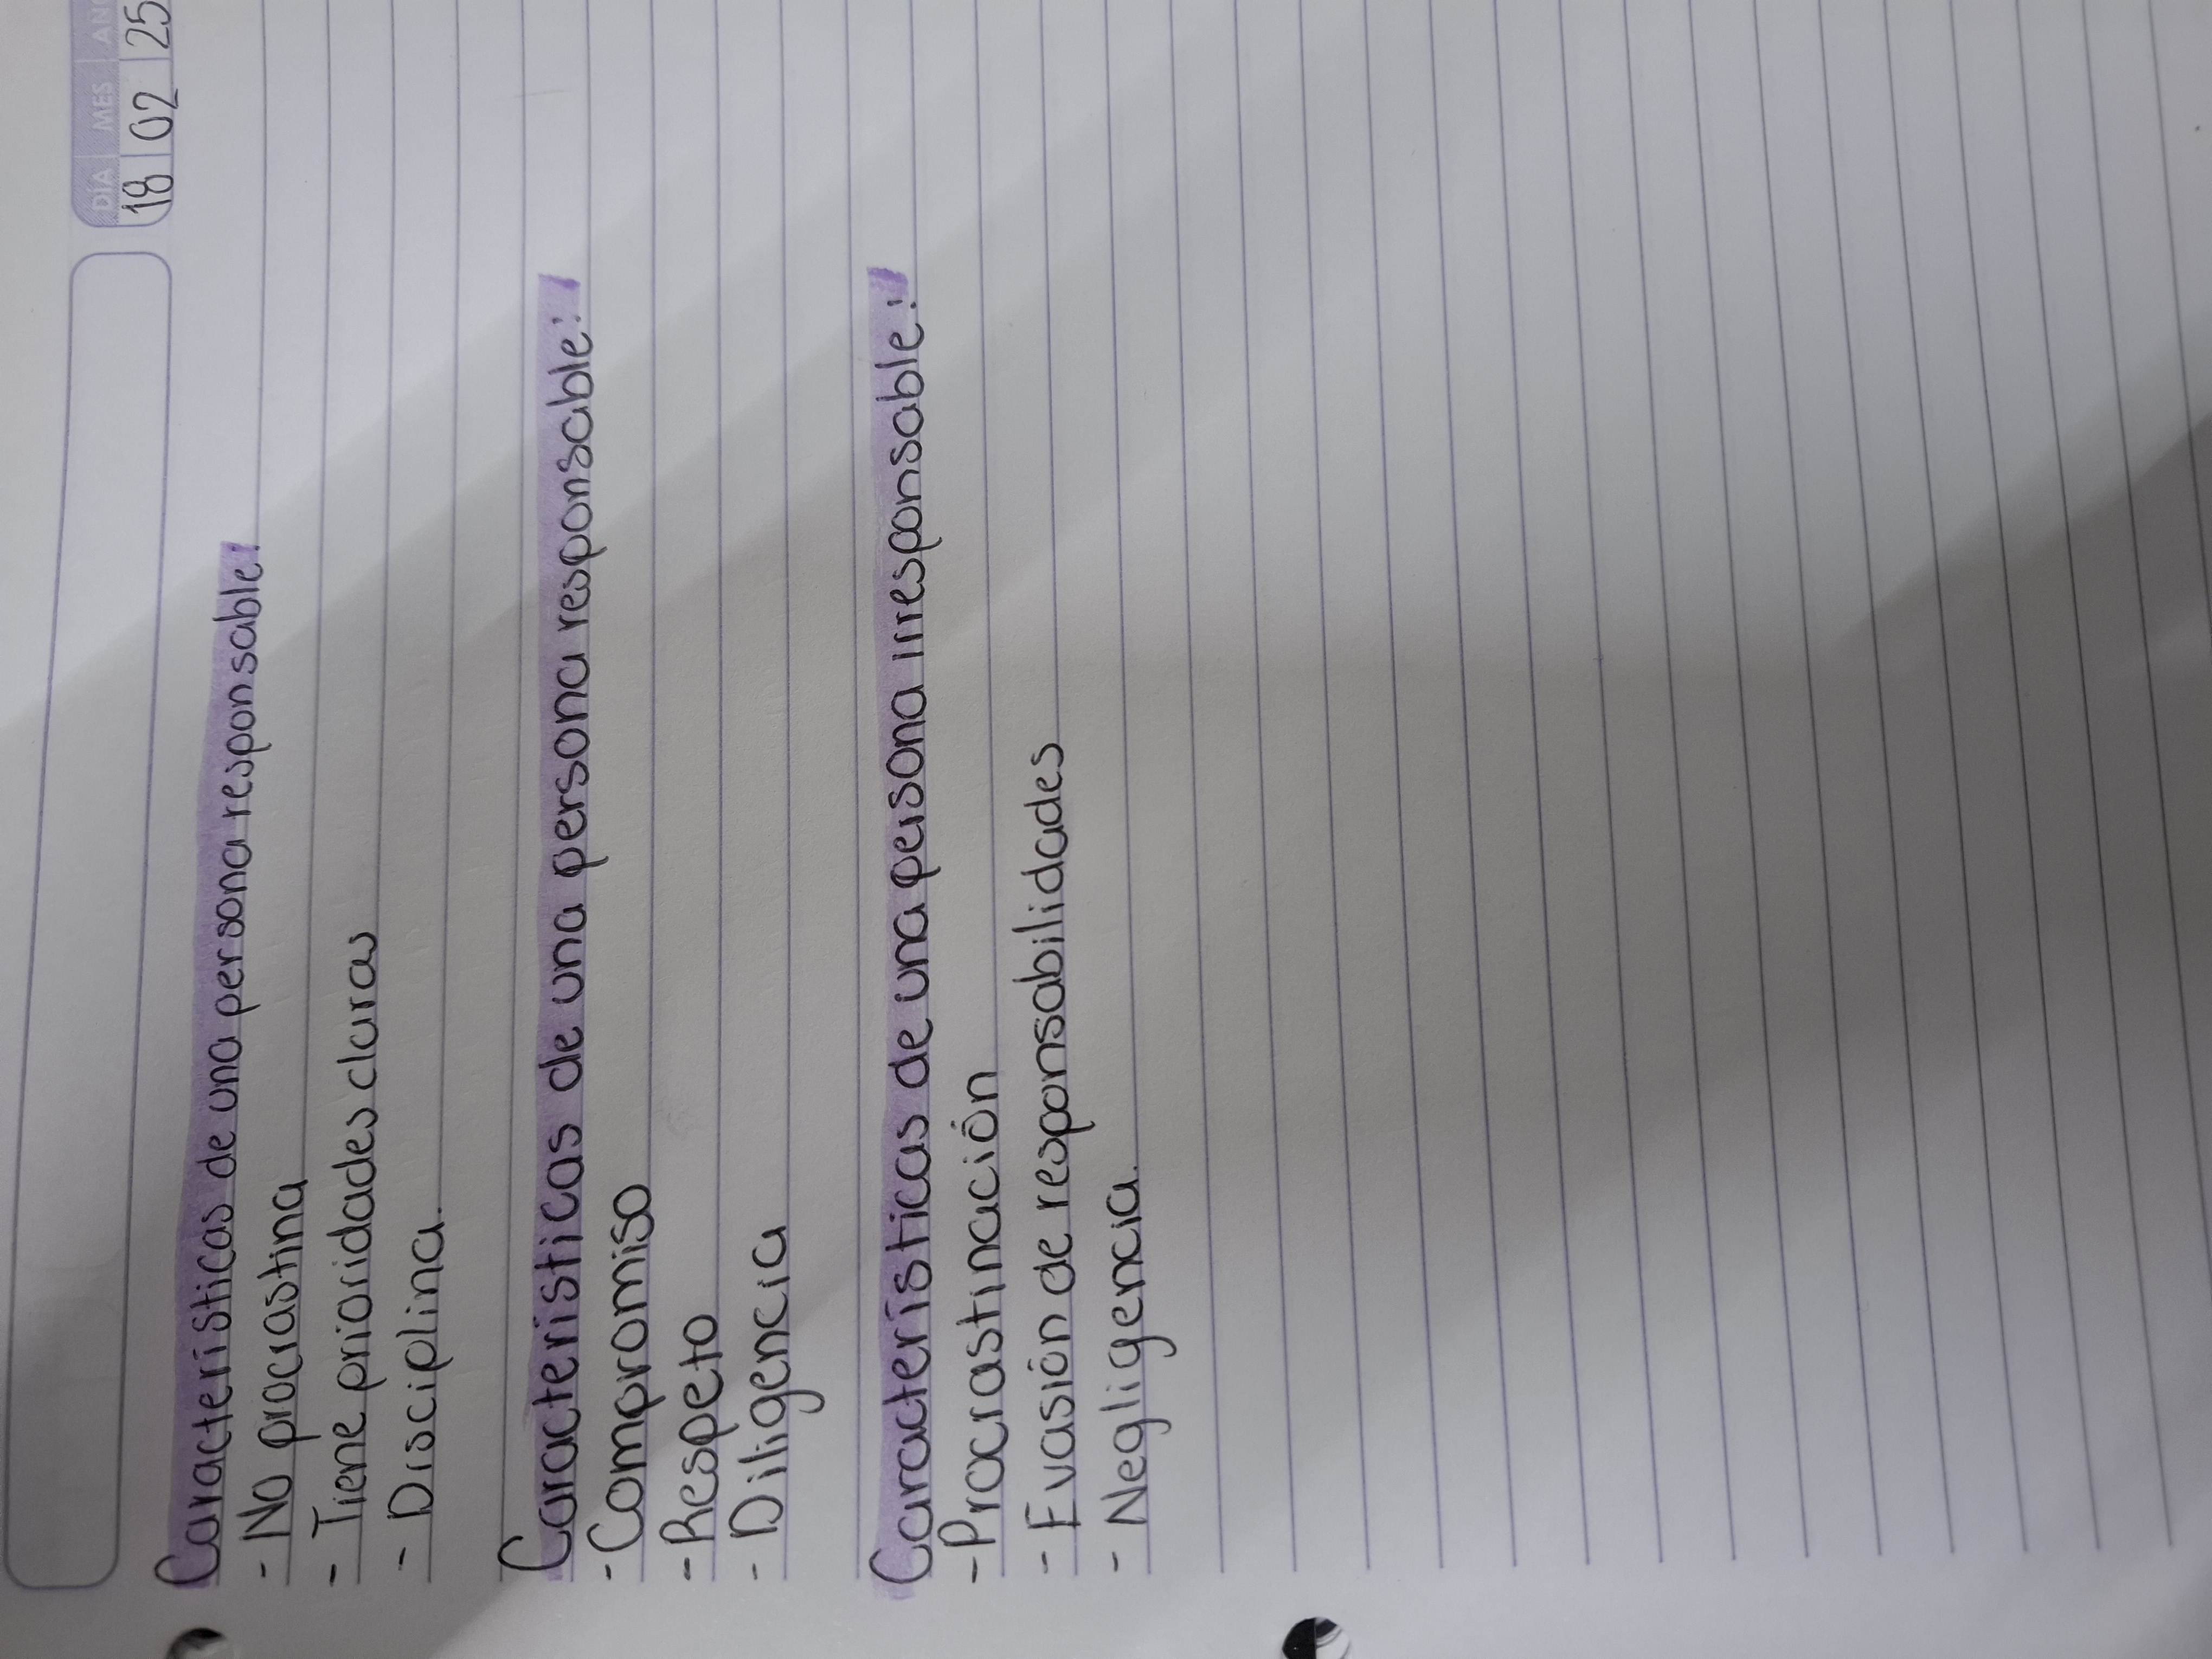 DÍA MES AÑO
18 02 25
Características de una persona responsable:
- No procrastina
- Tiene prioridades claras
- Disciplina.
Características de una persona responsable:
- Compromiso
- Respeto
- Diligencia
Características de una persona irresponsable:
- Procrastinación
- Evasión de responsabilidades
- Negligencia.